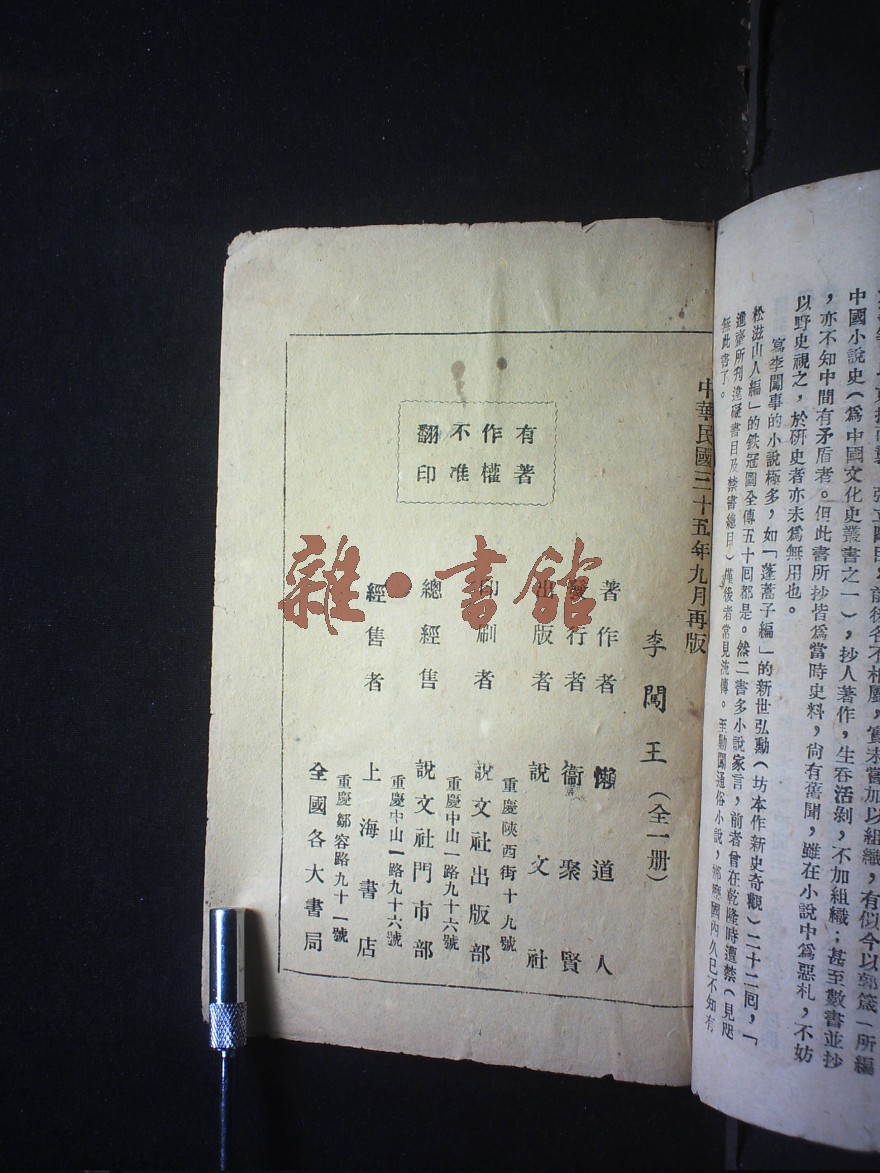 中國小說史（爲中國文化史叢書之一），抄人著作，生吞活剝，不加組織；甚至數書並抄
，亦不知中間有矛盾者。但此書所抄皆爲當時史料，尚有舊聞，雖在小說中爲惡札，不妨
以野史視之，於研史者亦未爲無用也。
寫李闖事的小說極多，如「蓬蒿子編」的新世弘勳（坊本作新史奇觀）二十二回，「
松滋山人編」的鉄冠圖全傳五十回都是。然二書多小說家言，前者曾在乾隆時遭禁（見咫
進齋所刊違礙書目及禁書總目）僅後者常見流傳。至勦闖通俗小說，
國內久已不知有
無此書了。
中華民國三十五年九月再版
李闖王（全一册）
著作者 懶道人
發行者 衞聚賢
出版者 說文社
重慶陝西街十九號
印刷者 說文社出版部
重慶中山一路九十六號
總經售 說文社門市部
重慶中山一路九十六號
經售者 上海書店
重慶鄒容路九十一號
全國各大書局
有著
作權
不准
翻印
雜·書館